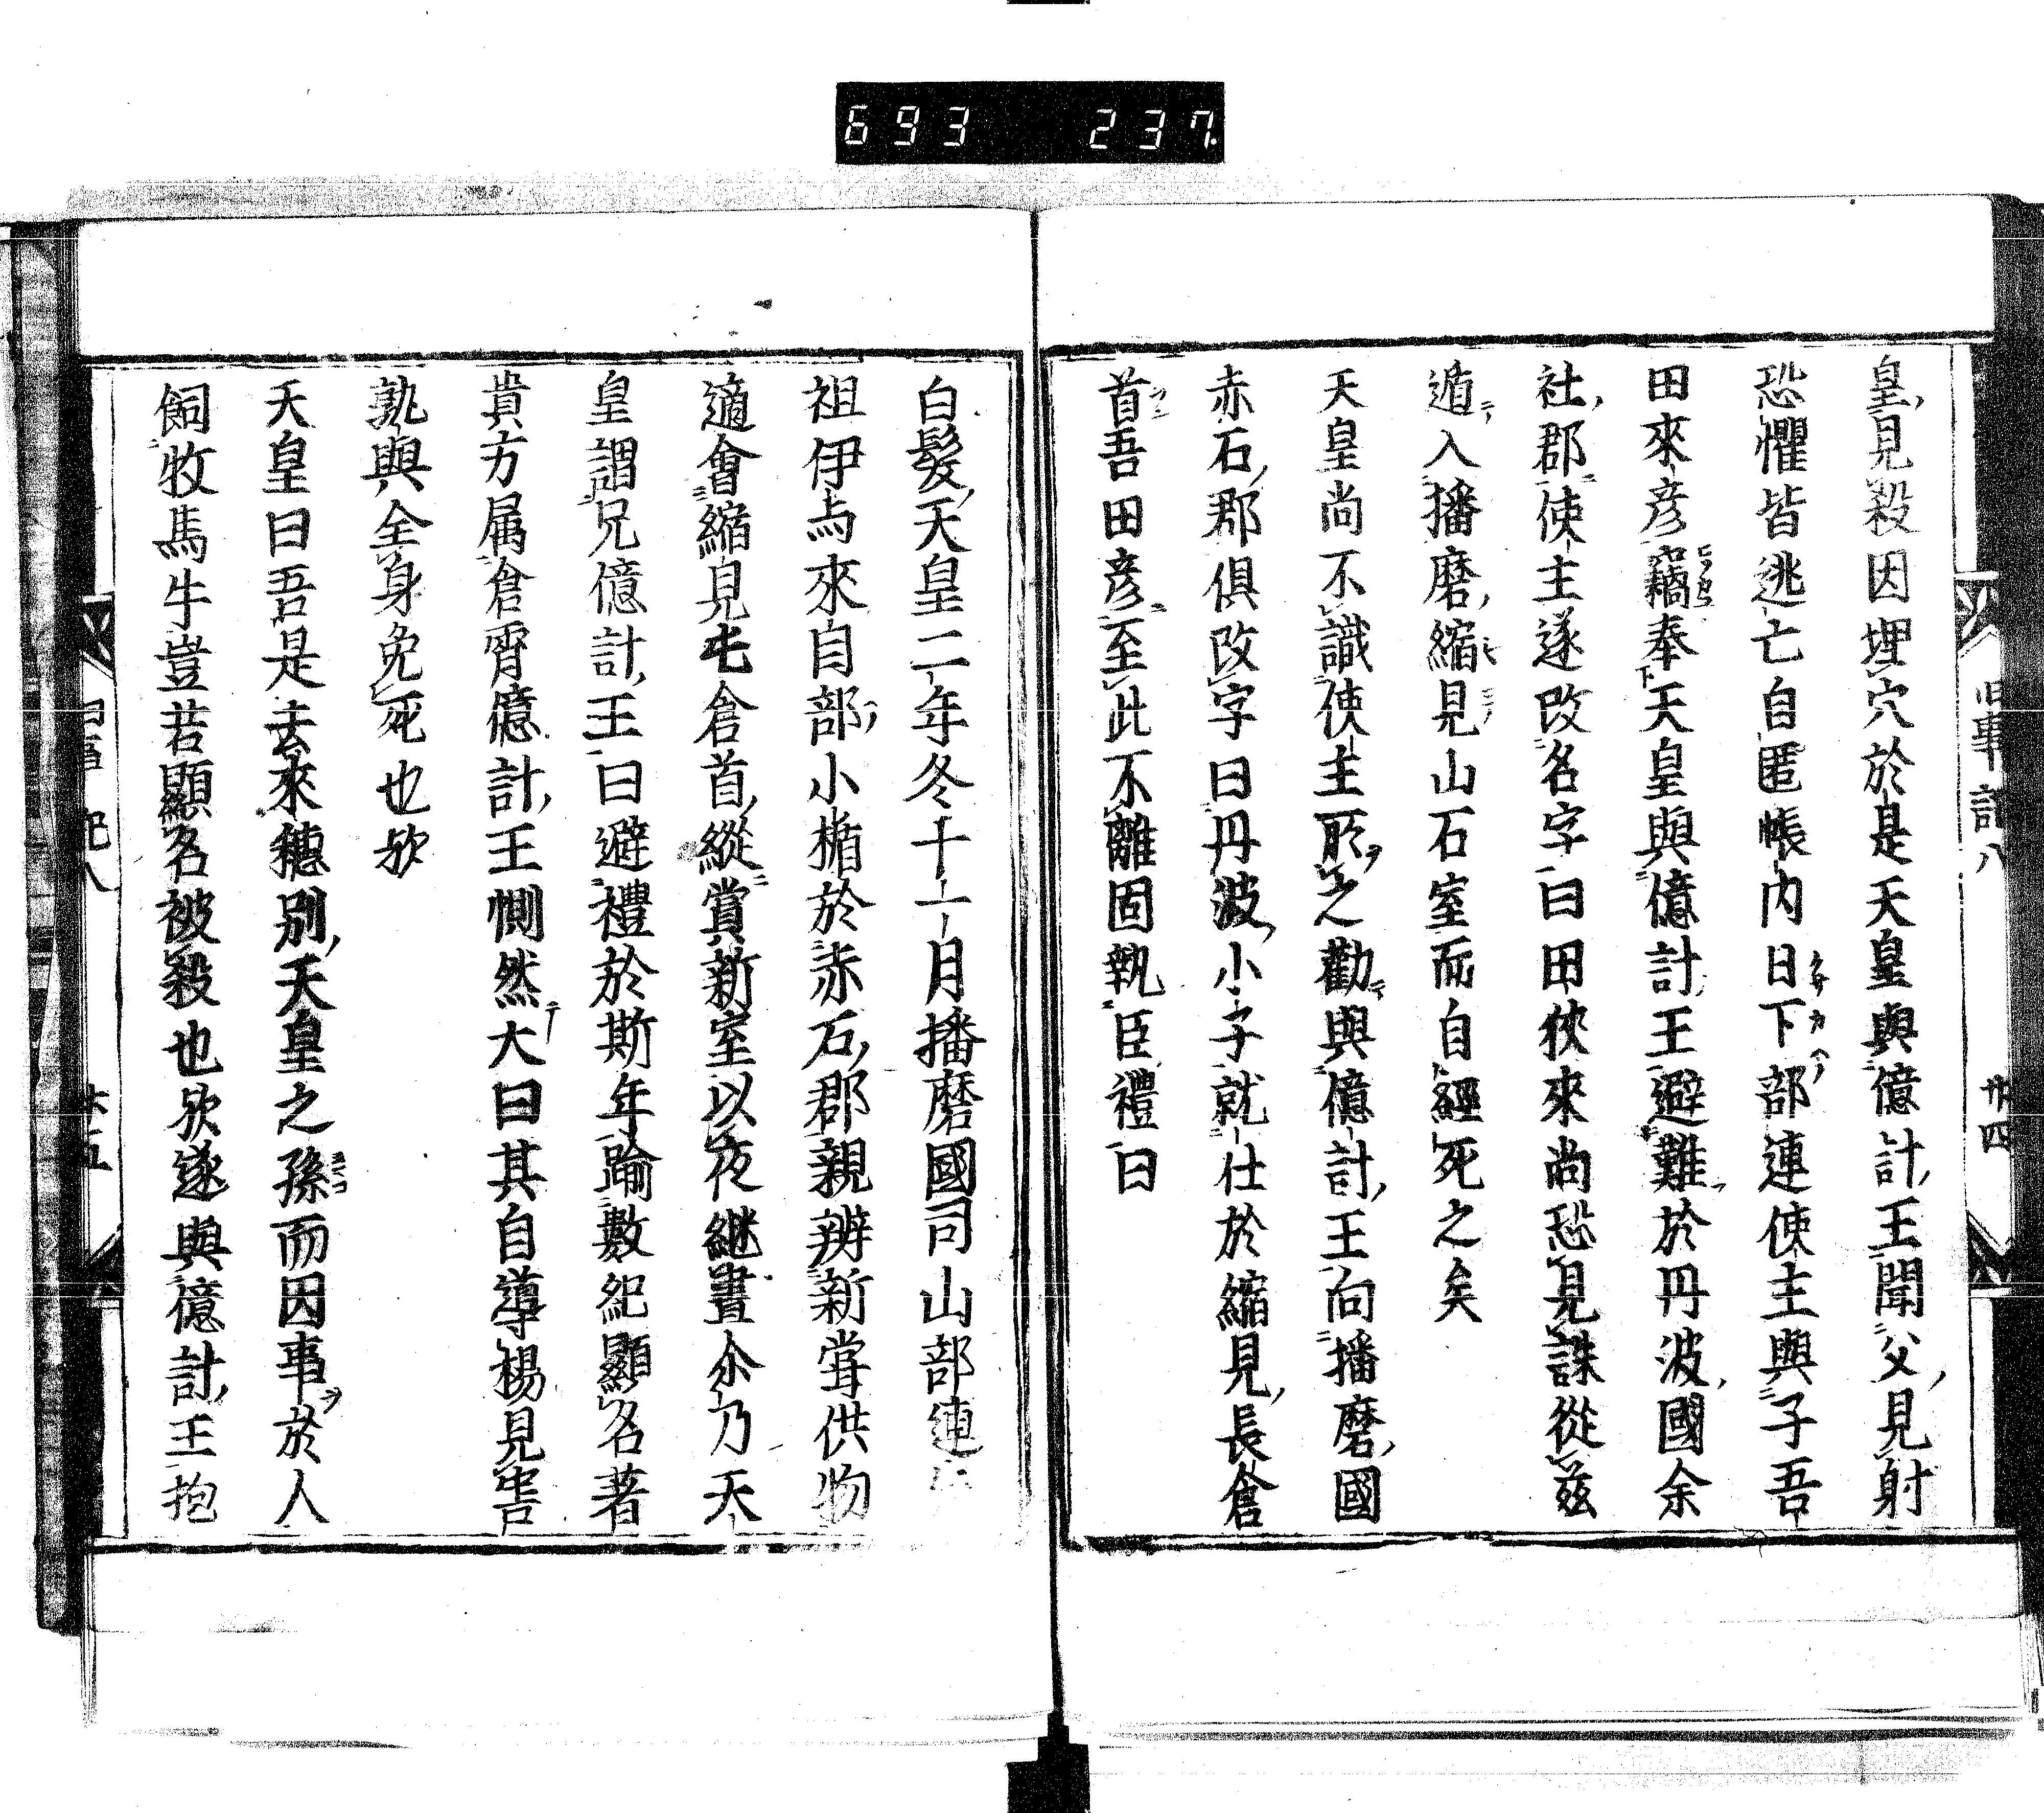 693 237
旧事記八 卅四
皇見殺因埋穴於是天皇與億計王聞父見射
恐懼皆逃亡自匿帳内日下部連使主與子吾
田來彦竊奉天皇與億計王避難於丹波國余
社郡使主遂改名字曰田狹來尚恐見誅從茲
遁入播磨縮見山石室而自經死之矣
天皇尚不識使主所之勸與億計王向播磨國
赤石郡俱改字曰丹波小子就仕於縮見長倉
首吾田彦至此不離固執臣禮曰
白髮天皇二年冬十一月播磨國司山部連
祖伊与來自部小楯於赤石郡親辨新甞供物
適會縮見屯倉首縱賞新室以夜継晝尒乃天
皇謂兄億計王曰避禮於斯年踰數紀顯名著
貴方属倉霄億計王惻然大曰其自導楊見害
孰與全身免死也欤
天皇曰吾是去來穗別天皇之孫而因事於人
飼牧馬牛豈若顯名被殺也欤遂與億計王抱